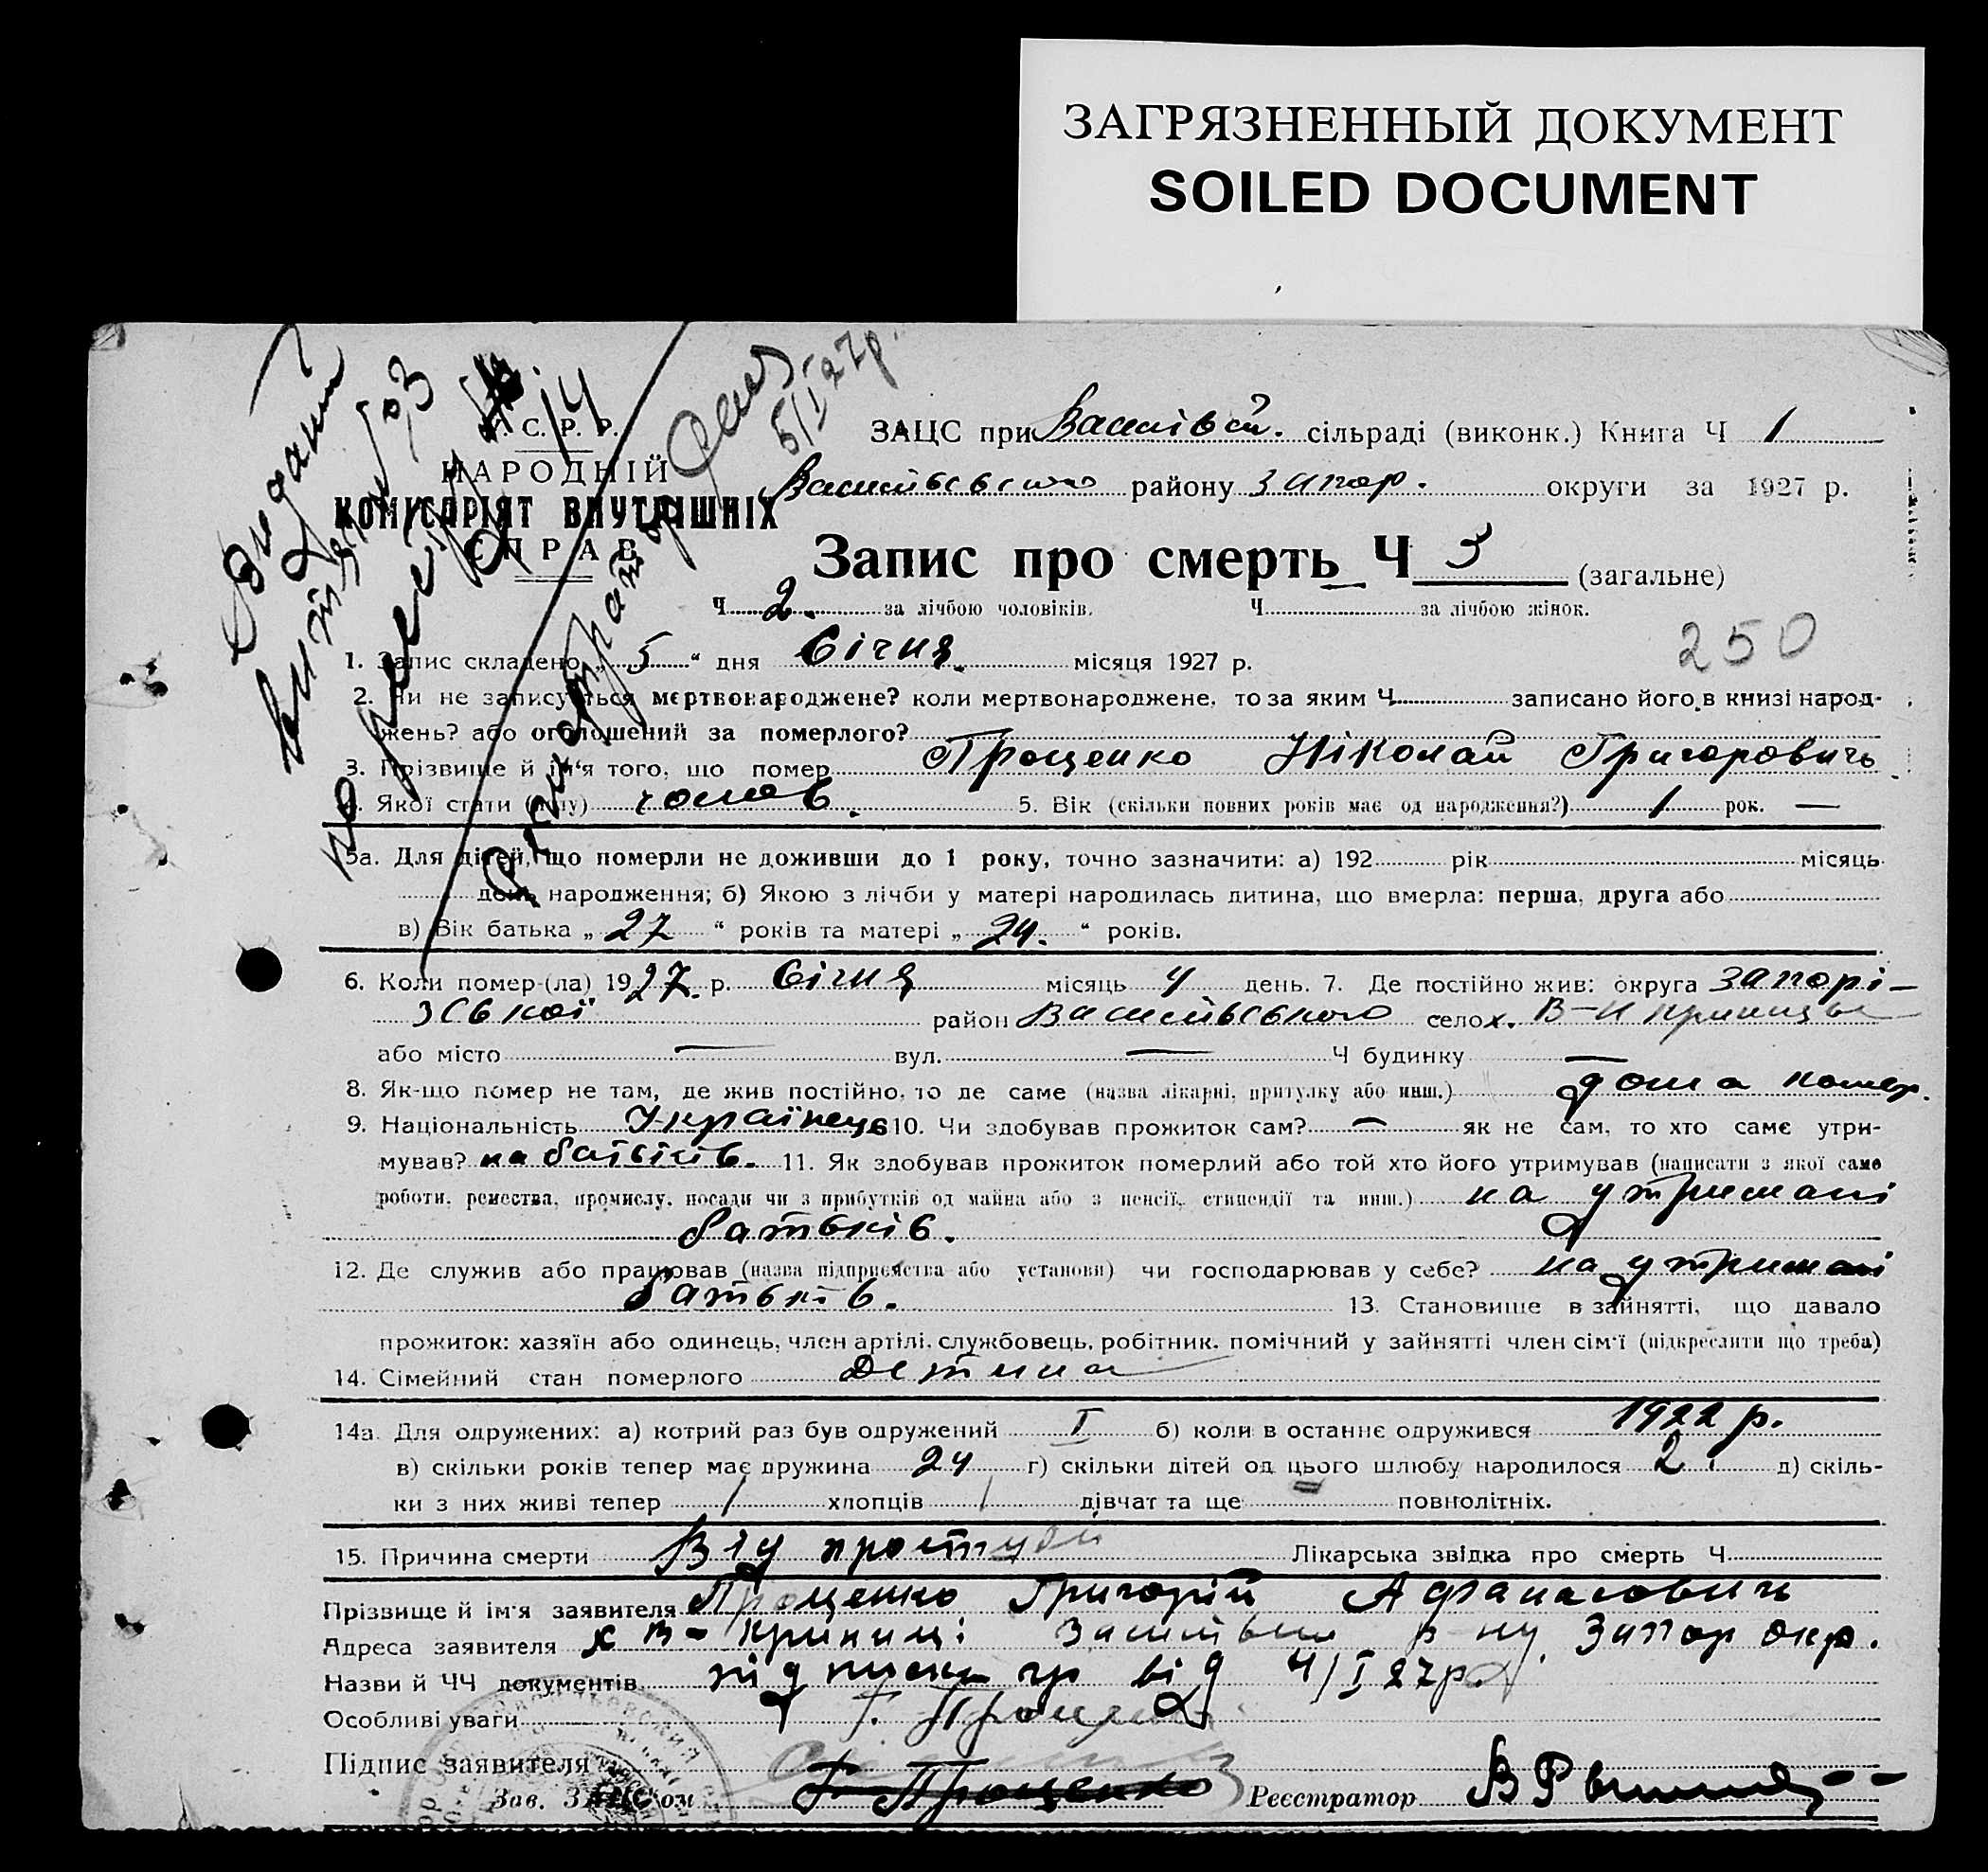 ЗАГРЯЗНЕННЫЙ ДОКУМЕНТ
SOILED DOCUMENT
5/I 27р.
С. Р. Р.
НАРОДНІЙ
КОМІСАРІЯТ ВНУТРІШНІХ
СПРАВ
ЗАЦС при сільраді (виконк.) Книга Ч 1
району Запор. округи за 1927 р.
Запис про смерть Ч 5 (загальне)
Ч 2. за лічбою чоловіків. Ч за лічбою жінок.
250
1. Запис складено „ 5 “ дня Січня. місяця 1927 р.
2. Чи не записується мертвонароджене? коли мертвонароджене, то за яким Ч записано його в книзі народ-
жень? або оголошений за померлого?
3. Прізвище й ім'я того, що помер Проценко Ніколай Григоровичь
4. Якої статі (полу) чолов. 5. Вік (скільки повних років має од народження?) 1 рок. —
5а. Для дітей, що померли не доживши до 1 року, точно зазначити: а) 192 рік місяць
день народження; б) Якою з лічби у матері народилась дитина, що вмерла: перша, друга або
в) Вік батька „ 27 “ років та матері „ 24. “ років.
6. Коли помер (ла) 1927. р. Січня місяць 4 день. 7. Де постійно жив: округа Запорі-
зської район Василівського село х.
або місто — вул. — Ч будинку —
8. Як-що помер не там, де жив постійно, то де саме (назва лікарні, притулку або инш.) дома помер.
9. Національність Українець 10. Чи здобував прожиток сам? — як не сам, то хто саме утри-
мував? на батьків. 11. Як здобував прожиток померлий або той хто його утримував (написати з якої саме
роботи, ремества, промислу, посади чи з прибутків од майна або з пенсії, стипендії та инш.) на утримані
батьків.
12. Де служив або працював (назва підприємства або установи) чи господарював у себе? на утримані
батьків. 13. Становище в зайнятті, що давало
прожиток: хазяїн або одинець, член артілі, службовець, робітник, помічний у зайнятті член сім'ї (підкреслити що треба)
14. Сімейний стан померлого Детина
14а. Для одружених: а) котрий раз був одружений I б) коли в останнє одружився 1922 р.
в) скільки років тепер має дружина 24 г) скільки дітей од цього шлюбу народилося 2. д) скіль-
ки з них живі тепер 1 хлопців 1 дівчат та ще = повнолітніх.
15. Причина смерти Від простуди Лікарська звідка про смерть Ч
Прізвище й ім'я заявителя Проценко Григорій Афанасовичь
Адреса заявителя Запор окр.
Назви й ЧЧ документів підписка гр від 4/I 27р.
Особливі уваги Г. Проценко
Підпис заявителя
Зав. ЗАЦС'ом Г. Проценко Реєстратор